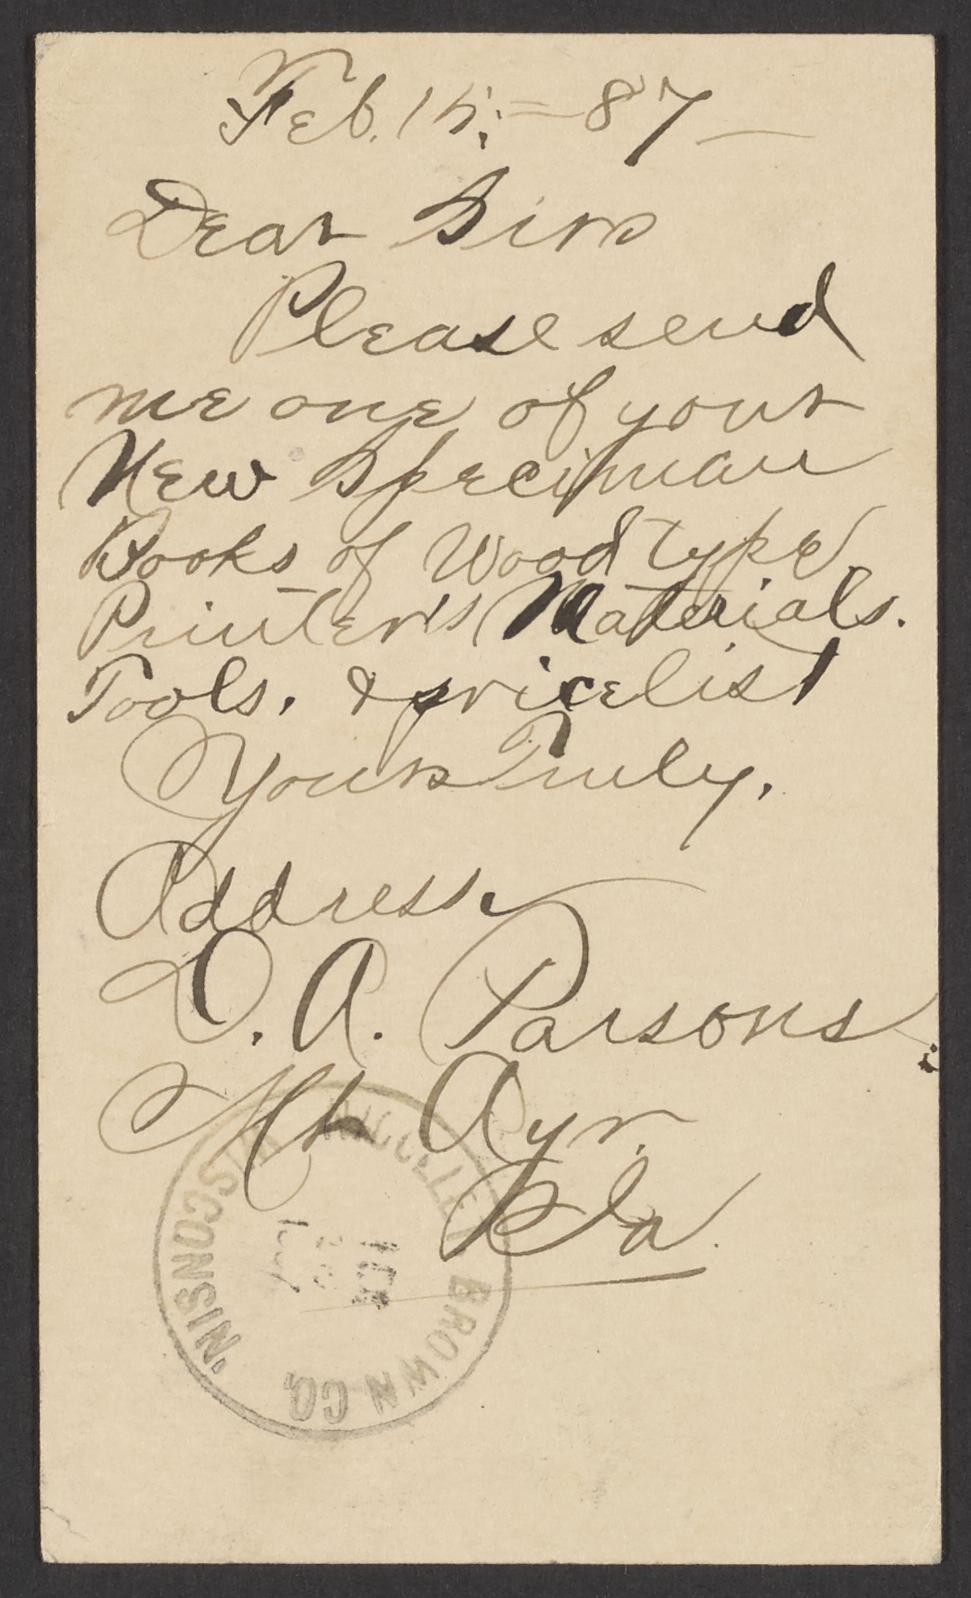 Feb. 15, = 87 —
Dear Sirs
Please send
me one of your
New Speciman
Books of Wood type
Printer's Materials.
Tools, & price list
Yours Truly,
Address.
D. A. Parsons
Mt Ayr.
Ia.
WISCONSIN.
BROWN CO.